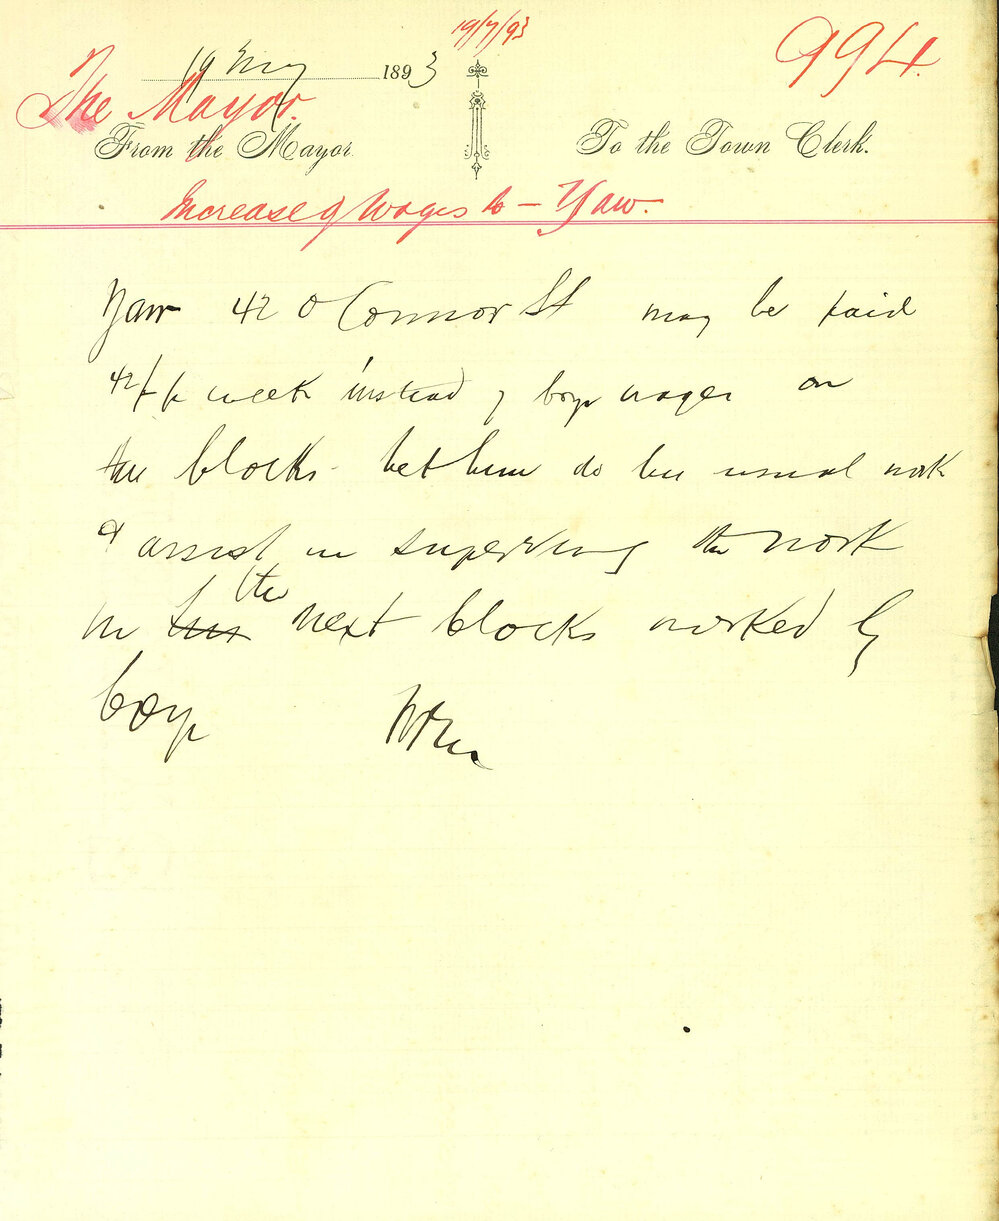 19/7/93
994.
19 May 1893
The Mayor.
From the Mayor. To the Town Clerk.
Increase of Wages to — Yaw.
Yaw 42 O'Connor St may be paid
42/- p week instead of boys wages on
the blocks. Let him do his usual work
& assist in supervising the work
in the next blocks worked by
boys